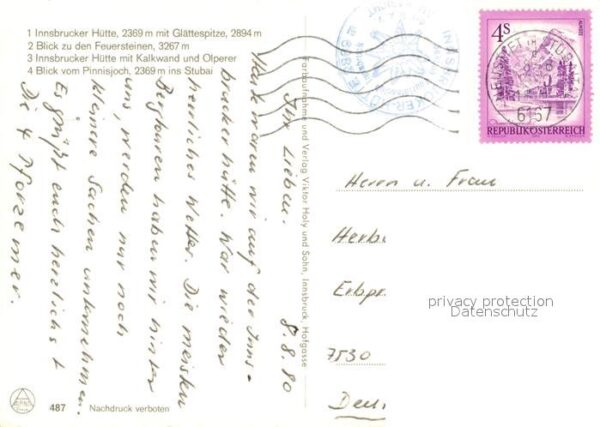 1 Innsbrucker Hütte, 2369 m mit Glättespitze, 2894 m
2 Blick zu den Feuersteinen, 3267 m
3 Innsbrucker Hütte mit Kalkwand und Olperer
4 Blick vom Pinnisjoch, 2369 m ins Stubai
8.8.80
Ihr Lieben.
Heute waren wir auf der Inns-
brucker hütte. War wieder
herrliches Wetter. Die meisten
Bergtouren haben wir hinter
uns, werden nur noch
kleinere Sachen unternehmen.
Es grüßt euch herzlichst
Die 4 Pforzemer.
Farbaufnahme und Verlag Viktor Holy und Sohn, Innsbruck, Hofgasse
487 Nachdruck verboten
4S
REPUBLIK ÖSTERREICH
6167
Herrn u. Frau
Herb.
Erbpr.
7530
privacy protection
Datenschutz